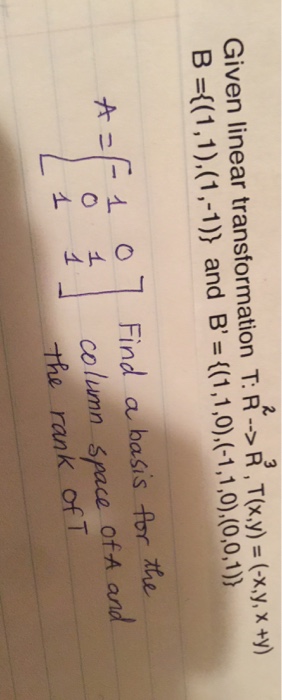 Given linear transformation T: R² --> R³, T(x,y) = (-x,y, x +y)
B ={(1,1),(1,-1)} and B' = {(1,1,0),(-1,1,0),(0,0,1)}
A = [-1 0
0 1
1 1] Find a basis for the
column space of A and
the rank of T